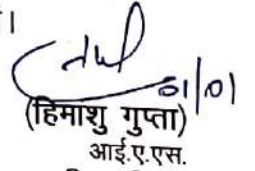 01/01
(हिमांशु गुप्ता)
आई.ए.एस.